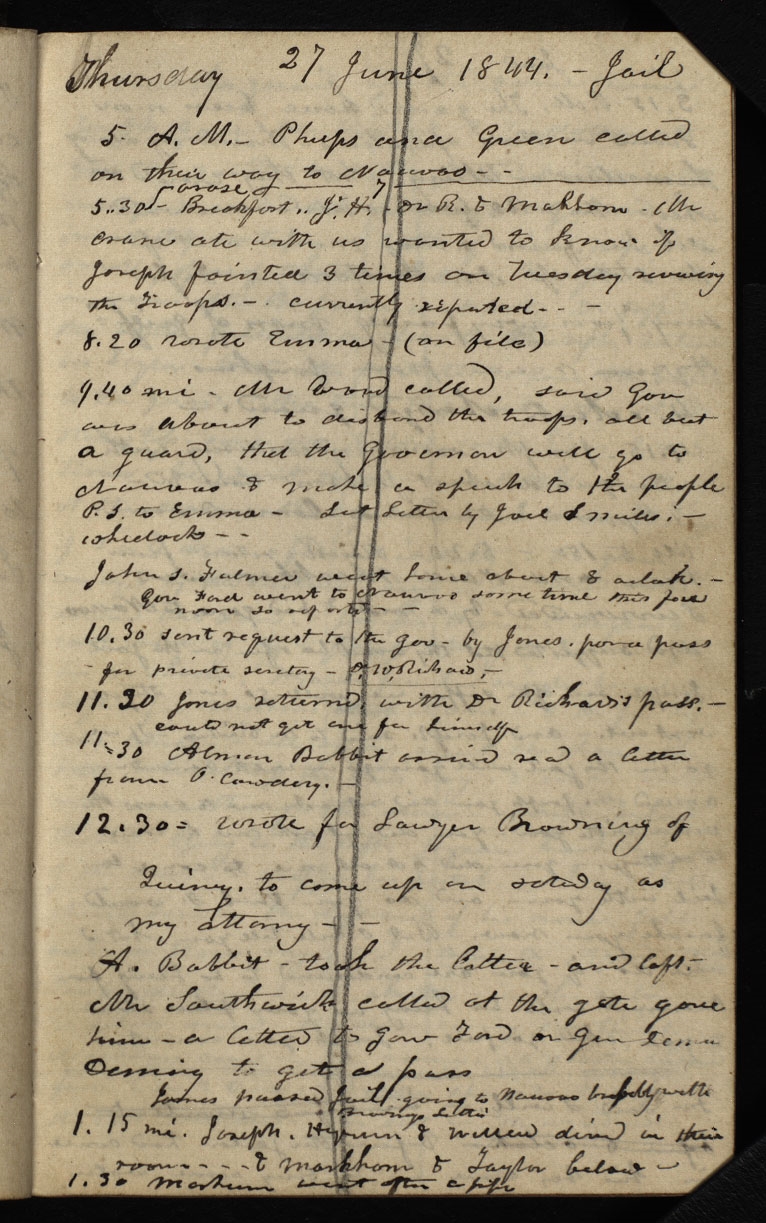 Thursday 27 June 1844. - Jail
5. A. M. - Phelps and Green called
on their way to Nauvoo - -
arose &
5..30 - Breakfast.. J. H. - Dr R. & Makham. Mr
crane ate with us wanted to know if
Joseph fainted 3 times on Tuesday reviewing
the Troops. - currently reputed - - -
8.20 wrote Emma - (on file)
9.40 mi - Mr Wood called, said Gov
was about to disband the troops. all but
a guard, that the Governor will go to
Nauvoo & make a speech to the people
P.S. to Emma - Let Letter by Joel S miles. -
wheelock - -
John S. Fulmer went home about 8 oclok. -
Gov Ford went to Nauvoo some time this fore
noon so reported - -
10.30 sent request to the Gov - by Jones. for a pass
- for private secretary - D. W. Richards, -
11.20 Jones returned, with Dr Richards pass. -
could not get one for himself
11=30 Almon Babbit arrived read a letter
from O. Cowdery. -
12.30 = wrote for Lawyer Browning of
Quincy. to come up on saturday as
my attorny - -
A. Babbit - took the Letter - and left.
Mr Southwick called at the gate gave
him - a letter to Gov Ford or Gen
Deming to get a pass
James passed Jail going to Nauvoo with
1. 15 mi. Joseph. Hyrum & Willard dined in their
room - - - & markham & Taylor below -
1. 30 Markham went after a pipe